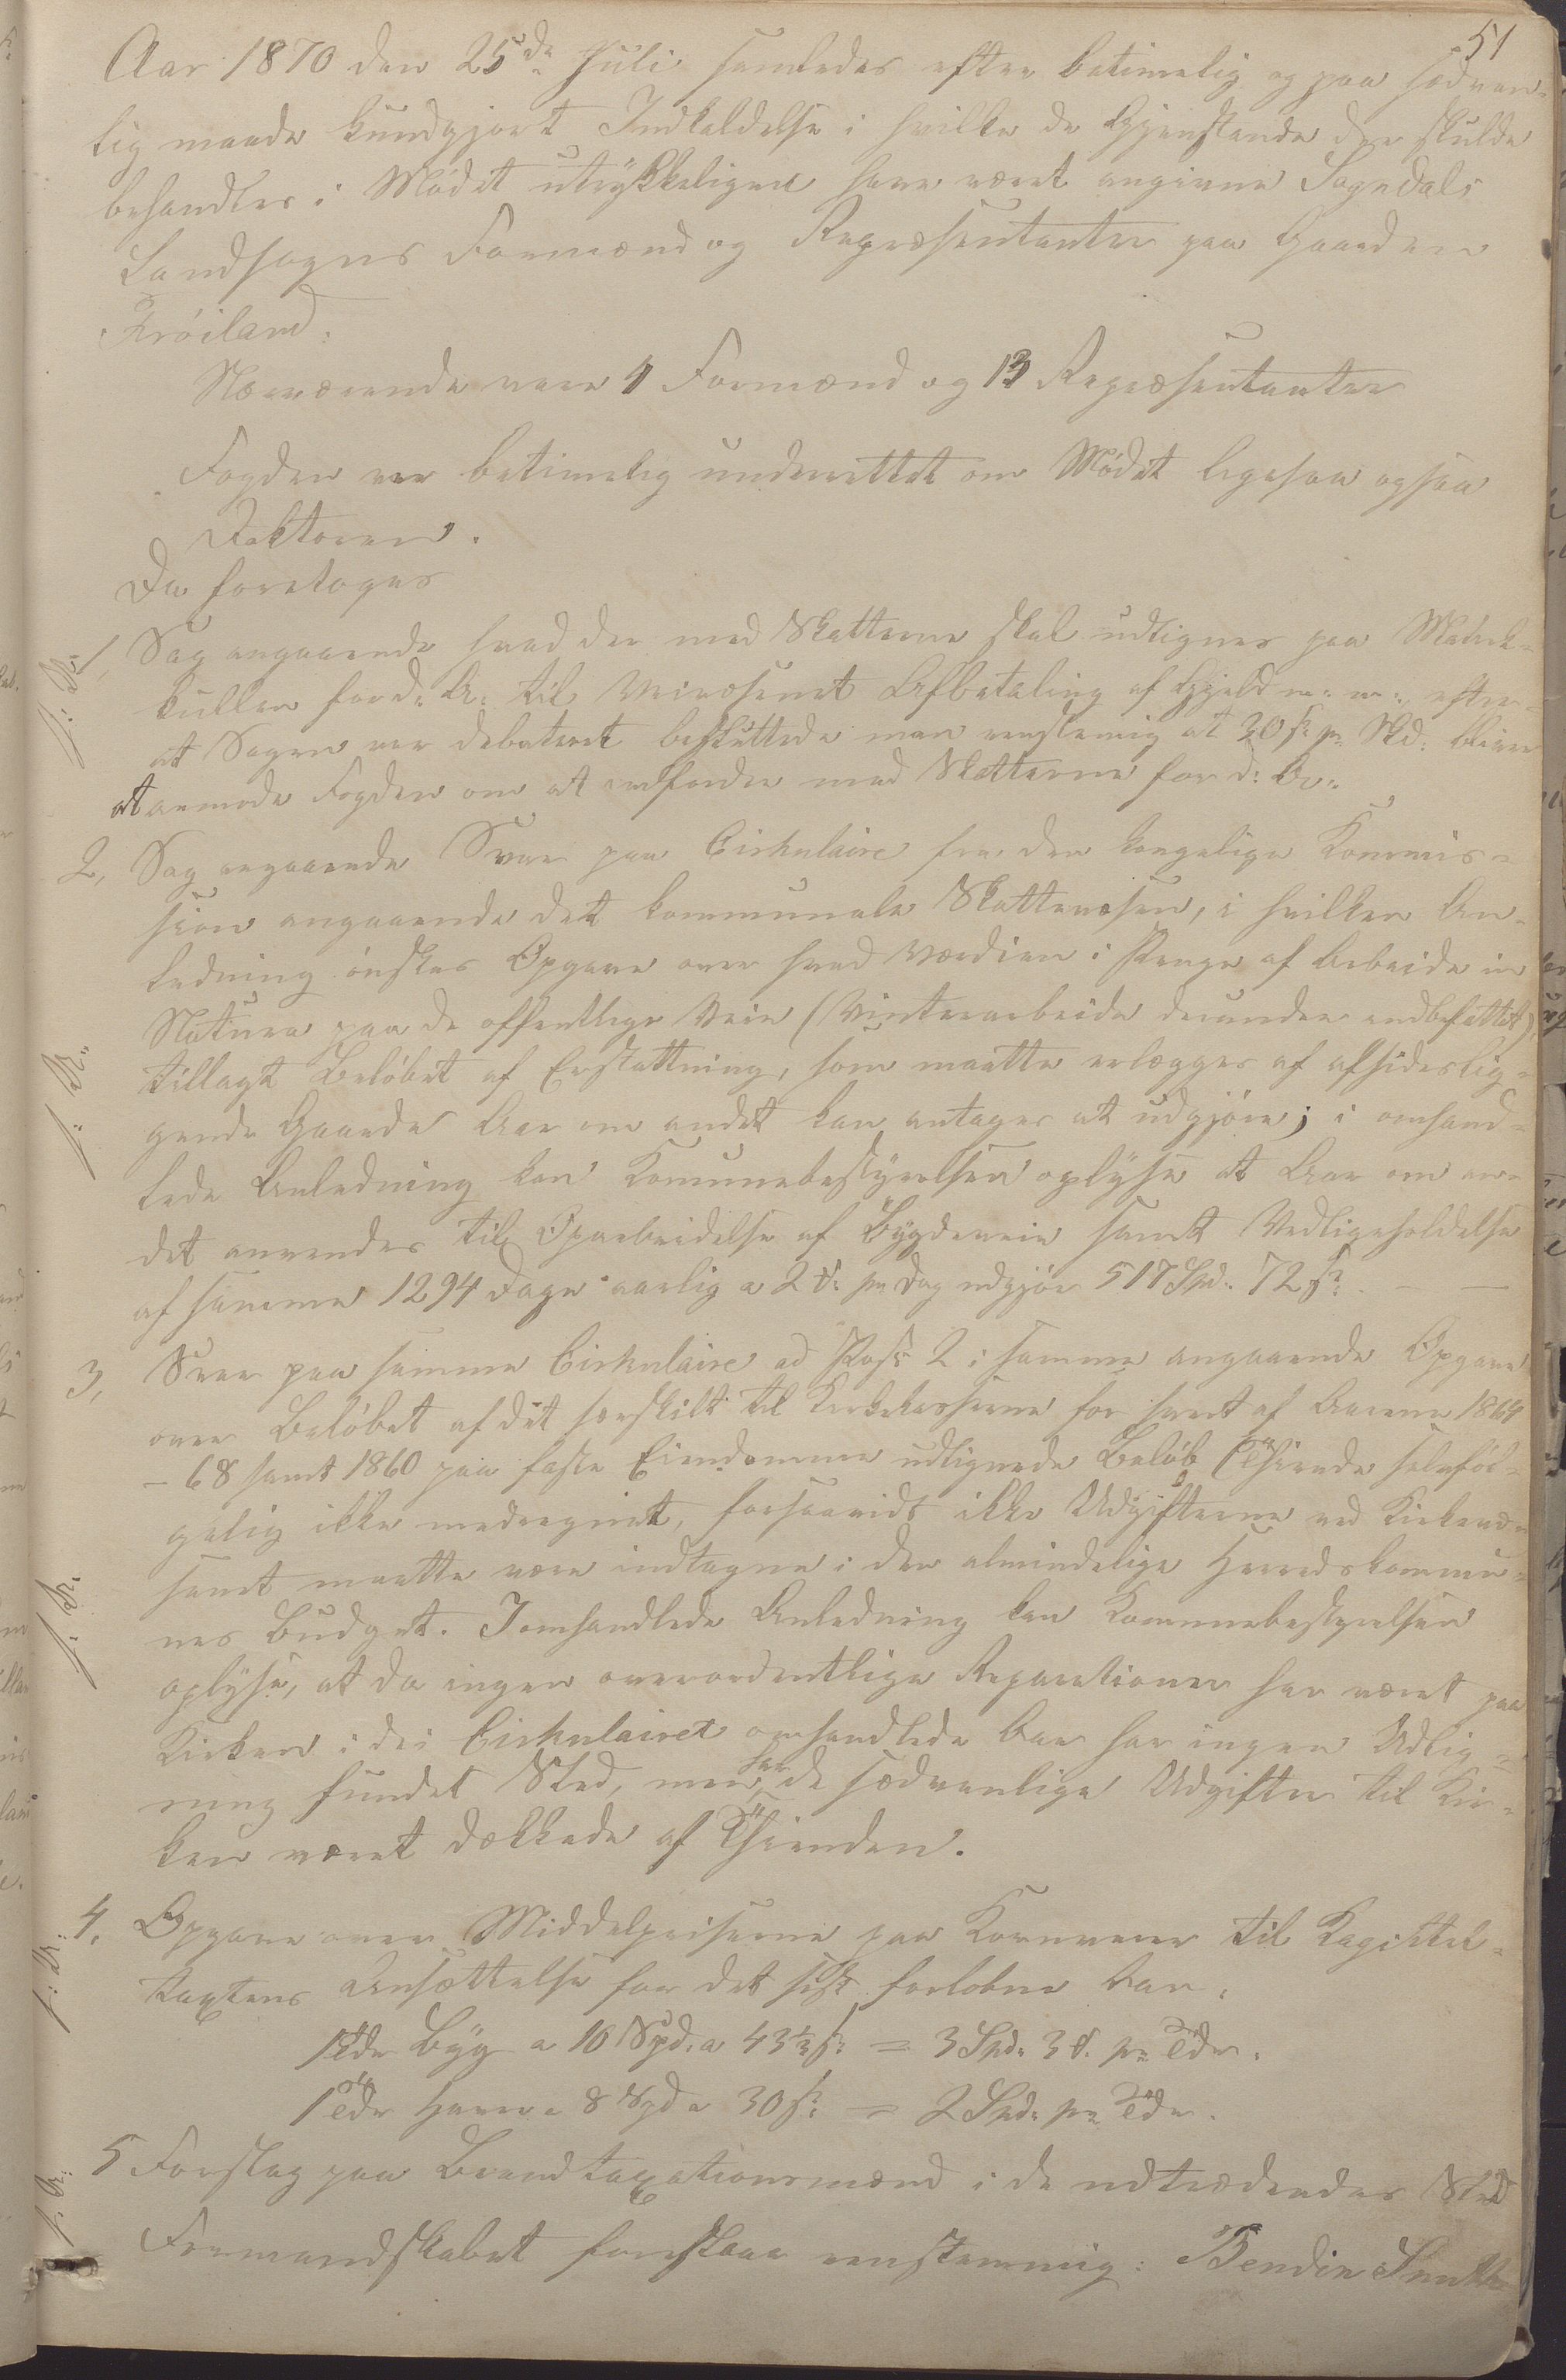 51
Aar 1870 den 25de Juli samledes efter betimelig og paa sædvan-
lig maade kundgjort Indkaldelse i hvilke de Gjenstande der skulde
behandles i Mødet utrykkeligen have været angivne Sogndals
Landsogns Formænd og Repræsentanter paa Gaarden
Frøiland.
Nærværende vare 4 Formænd og 13 Repræsentanter
Fogden var betimelig underrettet om Mødet ligesaa ogsaa
Doktoren.
Da foretoges
1, Sag angaaende hvad der med Skatterne skal udlignes paa Matrik-
kullen for d: A: til Veivæsenet Afbetaling af Gjeld m: m:, efter-
at Sagen var debateret besluttede man eenstemig at 30 s pr Skd: bliver
at anmode Fogden om at indfordre med Skatterne for d: Ar:
2, Sag angaaende Svar paa Cirkulaire fra den kongelige Kommis-
sion angaaende det kommunale Skattevæsen, i hvilken An-
ledning ønskes Opgave over hvad Værdien i Penge af Arbeide in
Natura paa de offentlige Veie (Vinterarbeide derunder indbefattet),
tillagt Beløbet af Erstattning, som maatte erlægges af afsideslig-
gende Gaarde Aar om andet kan antages at udgjøre; i omhand-
lede Anledning kan Komunebestyrelsen oplyse at Aar om an-
det anvendes til Oparbeidelse af Bygdeveie samt Vedligeholdelse
af samme 1294 Dage aarlig a 2 # pr Dag udgjør 517 Spd: 72 s.
3, Svar paa samme Cirkulaire ad Post 2 i samme angaaende Opgave
over Beløbet af det særskilt til Kirkekasserne for hvert af Aarene 1864
- 68 samt 1860 paa faste Eiendomme udlignede Beløb (Thiende selvføl-
gelig ikke medregnet, forsaavidt ikke Udgifterne ved Kirkevæ-
senet maatte være indtagne i den almindelige Herredskommu-
nes Budget. I omhandlede Anledning kan Kommunebestyrelsen
oplyse, at da ingen overordentlige Reparationer har været paa
Kirken i de i Cirkulairet omhandlede Aar har ingen Udlig-
ning fundet Sted, men har de sædvanlige Udgifter til Kir-
ken været dækkede af Thienden.
4, Opgave over Middelpriserne paa Kornvarer til Kapittel-
taxtens Ansættelse for det sidst forløbne Aar.
1 Tdr Byg a 16 Spd. a 43½ s = 3 Spd: 3 # pr Tdr.
1 Tdr Havre a 8 Spd a 30 s = 2 Spd: pr Tdr.
5 Forslag paa Brandtaxationsmænd i de udtrædendes Sted
Formandskabet foreslaar eenstemmig: Bendix